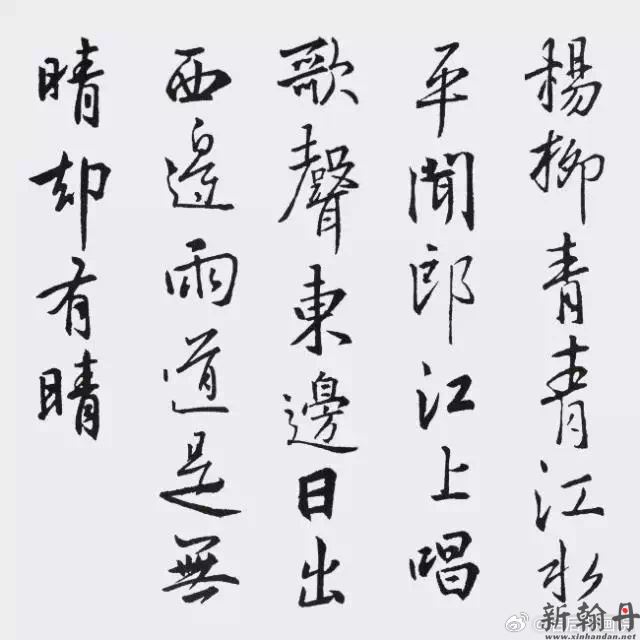 楊柳青青江水
平聞郎江上唱
歌聲東邊日出
西邊雨道是無
晴却有晴
新翰丹
www.xinhandan.net